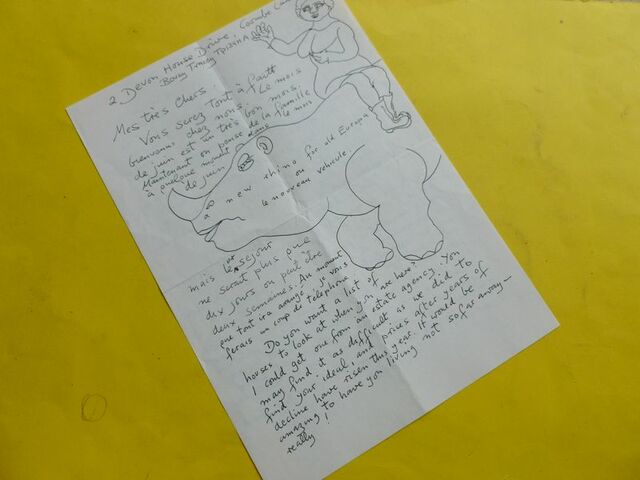 2 Devon House Drive, Coombe Lane
Bovey Tracey TQ13
Mes très chers.
Vous serez tout à fait
bienvenu chez nous. Le mois
de juin est un très bon mois.
Maintenant on pense de la famille
à quelque moment dans le mois
de juin
a new rhino for old Europa
ou
le nouveau vehicule.
mais le séjour
ne serait plus que
dix jours ou peut être
deux semaines. Au moment
que tout ira arrangé, je vous
ferais un coup de téléphone
Do you want a list of
houses to look at when you are here?
I could get one from an estate agency. You
may find it as difficult as we did to
find your ideal, and prices after years of
decline have risen this year. It would be
amazing to have you living not so far away—
really!